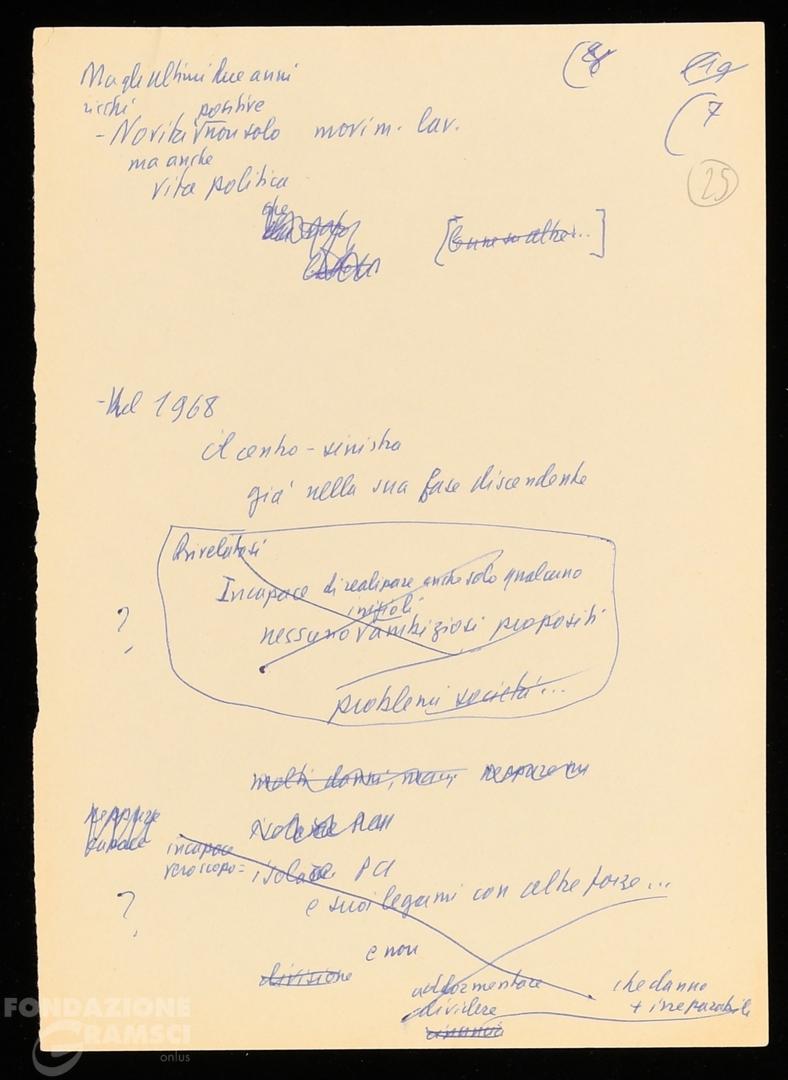 Ma gli ultimi due anni
(7
25
ricchi positive
- Novità non solo movim. lav.
ma anche
vita politica
che
- Nel 1968
il centro-sinistra
già nella sua fase discendente
Rivelatosi
Incapace di realizzare anche solo qualcuno
iniziali
? nessuno ambiziosi propositi
problemi società...
molti danni, neppure
neppure
capace
incapace
vero scopo = isolare PCI
e suoi legami con altre forze...
?
e non
divisione
addormentare che danno
dividere + irreparabile
FONDAZIONE
GRAMSCI
onlus